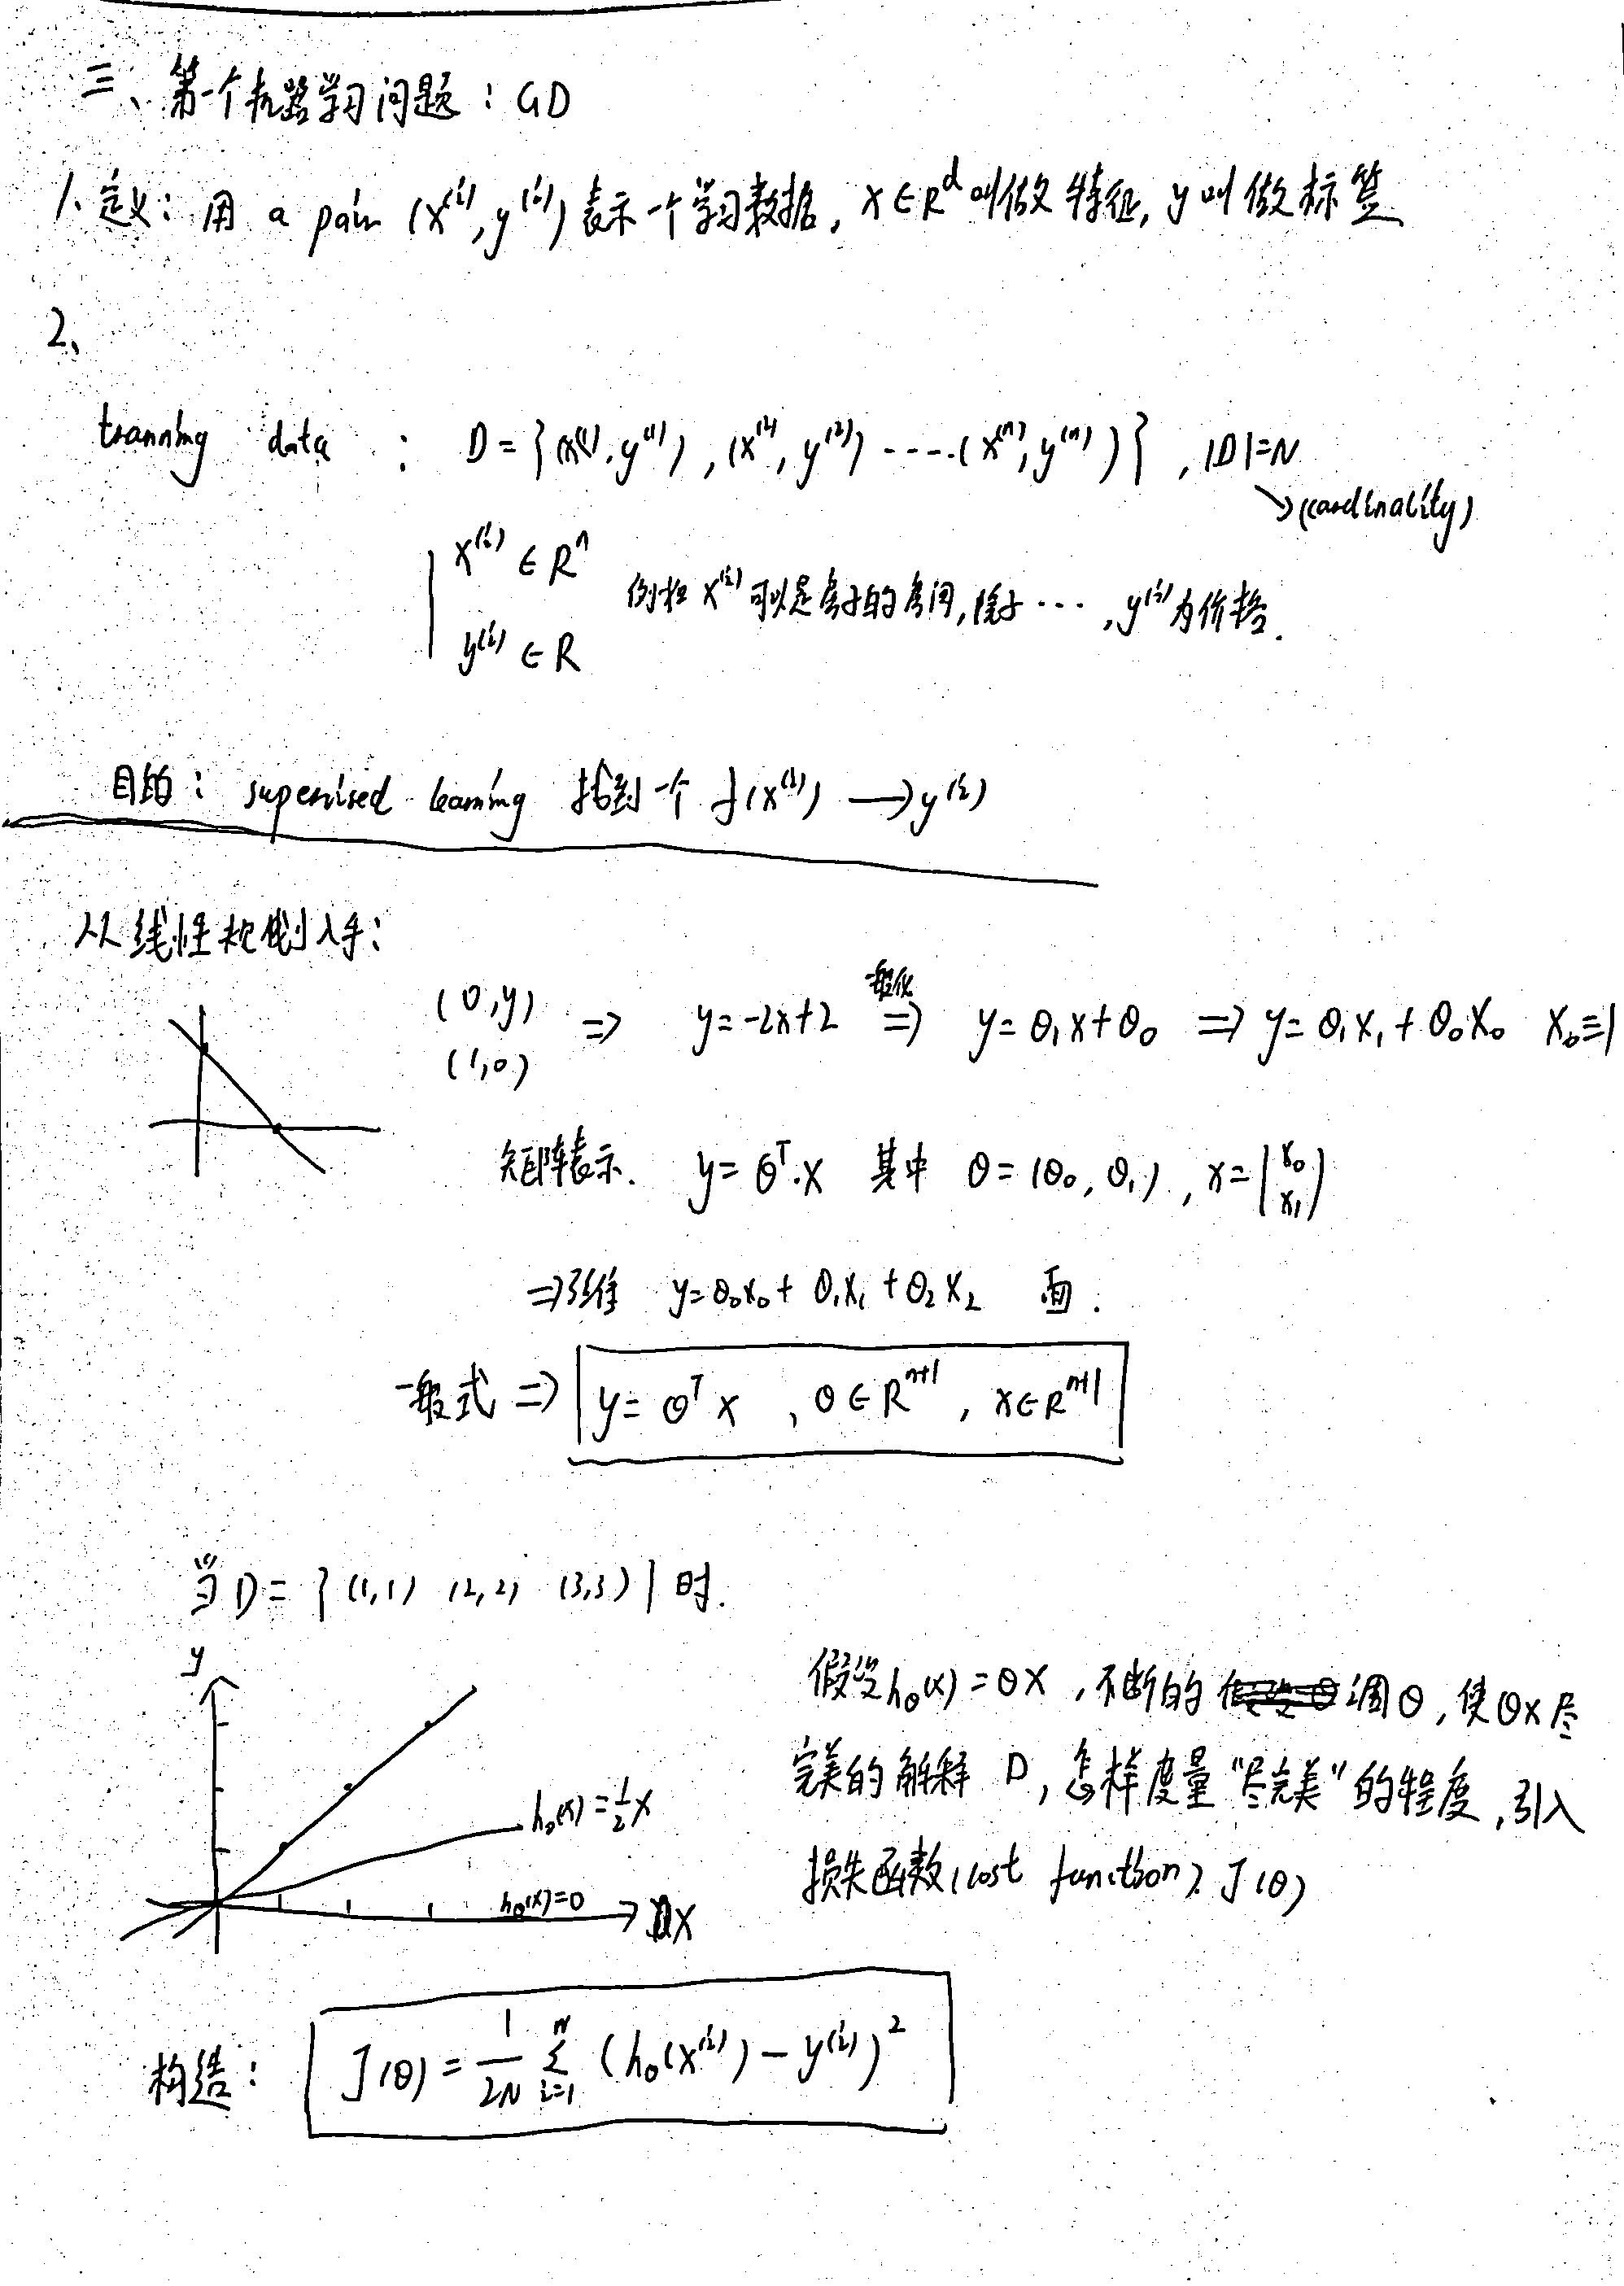 三、第一个机器学习问题：GD
1. 定义：用 a pair (x^(i), y^(i)) 表示一个学习数据，x∈R^d 叫做特征，y叫做标签
2、
tranning data : D = {(x^(1), y^(1)), (x^(2), y^(2)) ----- (x^(n), y^(n))}, |D|=N
↘(cardinality)
x^(i) ∈ R^n
例如 x^(i) 可以是房子的房间, ···, y^(i)为价格.
y^(i) ∈ R
目的：supervised learning 找到一个 f(x^(i)) → y^(i)
从线性规划入手：
(0,y)
(1,0)
⇒ y=-2x+2 一般化⇒ y=θ₁x+θ₀ ⇒ y=θ₁x₁+θ₀x₀ x₀≡1
矩阵表示. y=θ^T·x 其中 θ=(θ₀,θ₁), x=(x₀ x₁)
⇒3维 y=θ₀x₀+θ₁x₁+θ₂x₂ 面.
一般式 ⇒ y=θ^T x , θ∈R^(n+1), x∈R^(n+1)
当D={(1,1) (2,2) (3,3)} 时.
y
h_θ(x)=½x
h_θ(x)=0
x
假设h_θ(x)=θx，不断的调θ，使θx尽
完美的解释 D，怎样度量“尽完美”的程度，引入
损失函数(cost function) J(θ)
构造： J(θ) = 1/2N Σ_{i=1}^{N} (h_θ(x^(i)) - y^(i))²